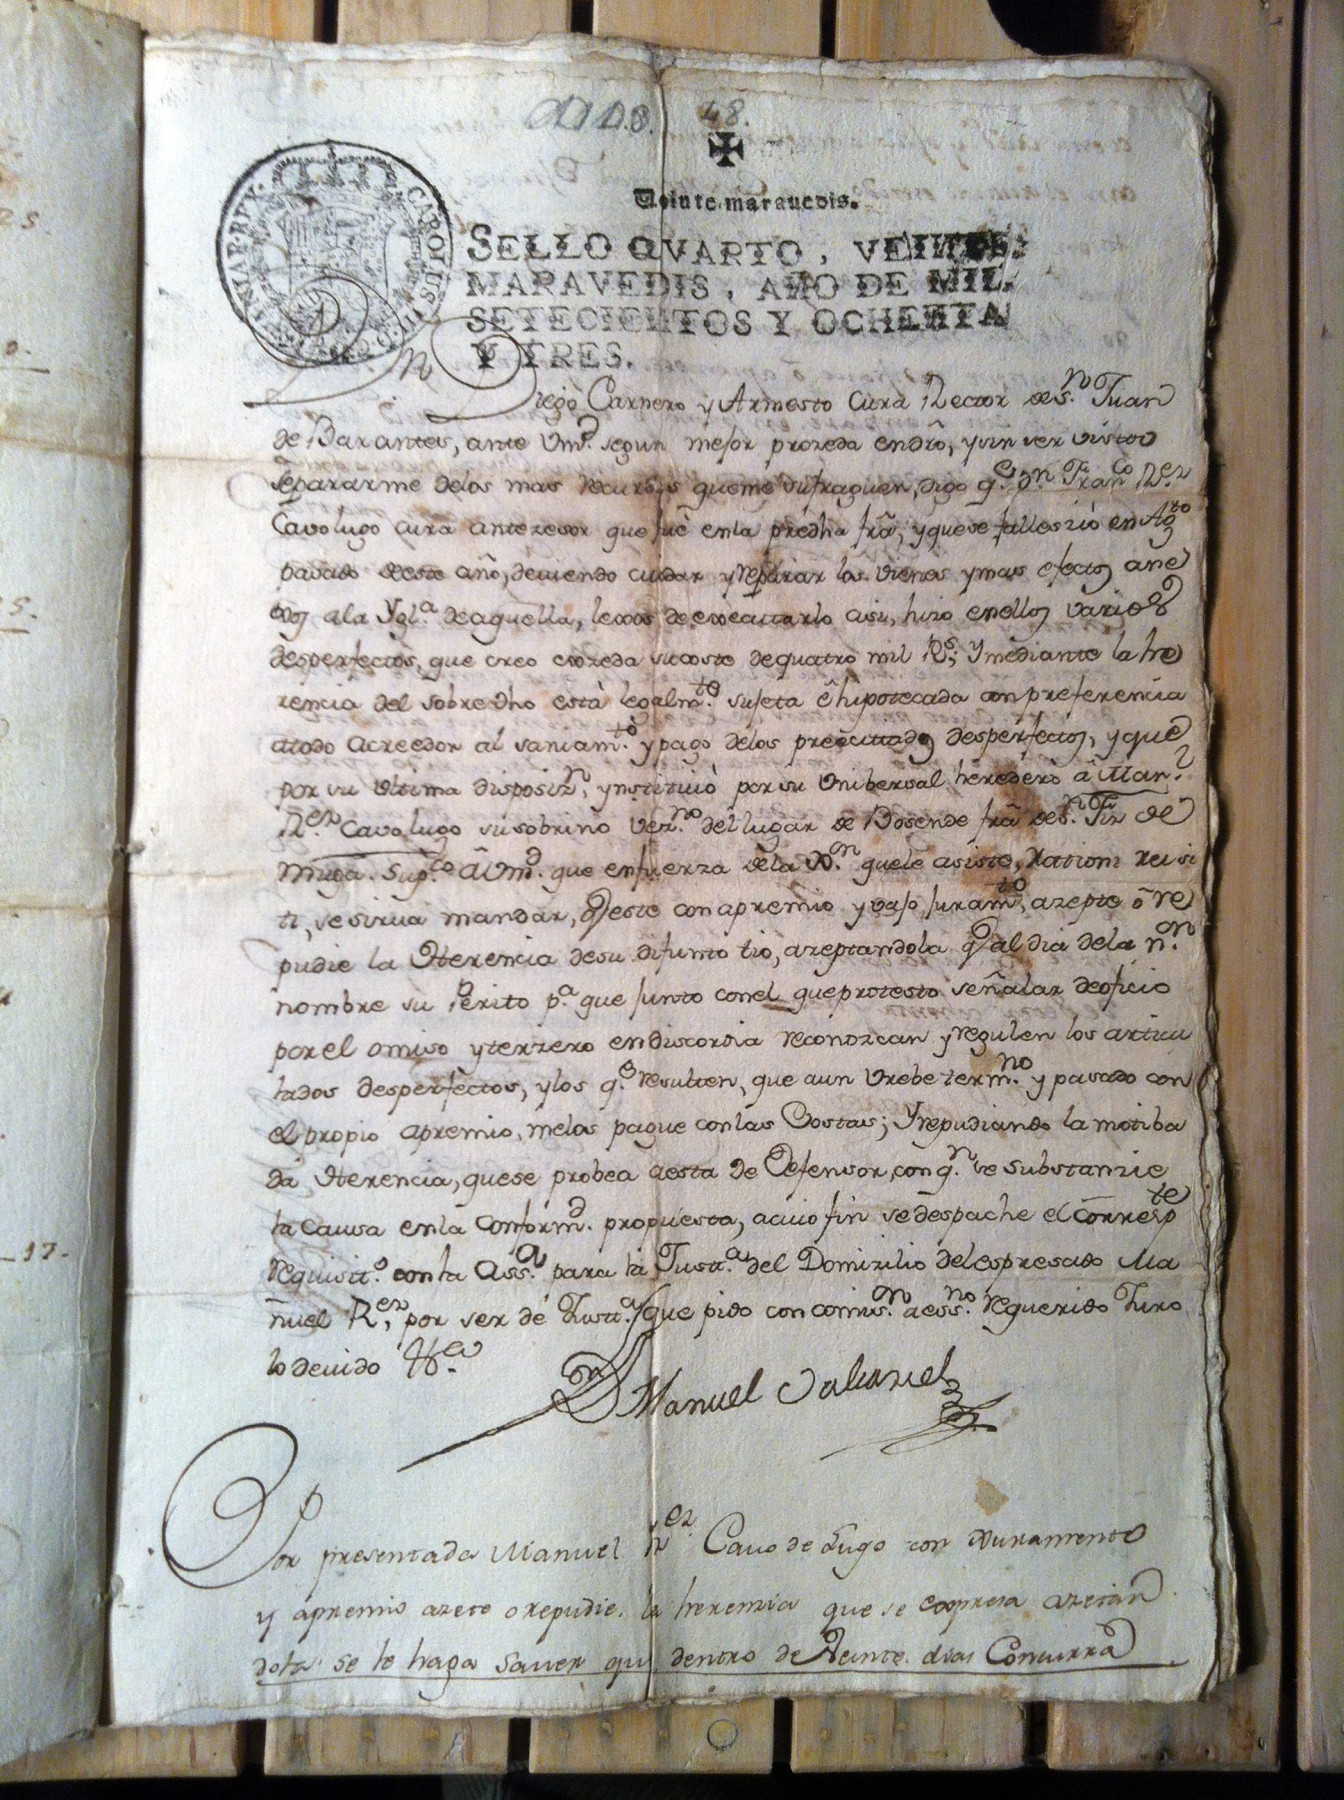 48.
Veinte maravedis.
SELLO QVARTO, VEINTE
MARAVEDIS, AÑO DE MIL
SETECIENTOS Y OCHENTA
Y TRES.
CAROLUS III D G HISPANIAR REX
Dn Diego Carnero y Armesto Cura Rector de Sn Juan
de Barantes, ante Vmd. segun mejor prozeda en dro, y sin ser visto
separarme de los mas recursos que me sufraguen, digo qe. Dn. Franco Rez
Cavo lugo cura antezesor que fue en la predha fra, y que se fallezió en Agto
pasado de este año, deviendo cuidar y reparar los vienes y mas efectos ane
xos a la Ygla. de aquella, lexos de executarlo asi, hizo en ellos varios
desperfectos, que creo exzeda su costo de quatro mil Rs; Y mediante la he
rencia del sobredho está legalmte. sujeta e hipotecada con preferencia
atodo acreedor al saniamto. y pago delos preecitados desperfectos, y que
por su ultima disposizn, ynstituió por su Unibersal heredero â Manl
Rez. Cavo lugo su sobrino vezno. del lugar de Bosende fra de Sn. Fiz de
Muja. Supco. â Vmd. que en fuerza dela Dn. que le asiste, ratione rei si
ti, se sirva mandar, qe este con apremio y vajo juramto, azepte ô re
pudie la Herencia de su difunto tio, azeptandola qe al dia de la non.
nombre su Perito pa. que junto con el que protesto señalar de oficio
por el omiso y terzero en discordia reconozcan y regulen los articu
lados desperfectos, y los qe. resulten, que a un vrebe termno. y pasado con
el propio apremio, melos pague con las Costas; Y repudiando la motiba
da Herencia, que se probea a esta de Defensor, con qn. se substanzie
la causa en la conformd. propuesta, a cuio fin se despache el correspte
requisito. con la Assa. para la Justa. del Domizilio del espresado Ma
nuel Rez, por ser de Justa. que pido con comisn. a essno. requerido Juro
lo devido &a.
Dn Manuel
Por presentada Manuel Rez Cavo de Lugo con Xuramento
y apremio azete o repudie. la herenzia que se expresa azetan
dola se le haga saver que dentro de Veinte dias Concurra
25.
17.